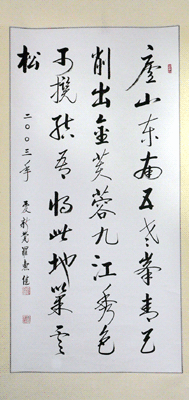 廬山东南五老峯青天
削出金芙蓉九江秀色
可攬結吾將此地巢雲
松
二〇〇三年